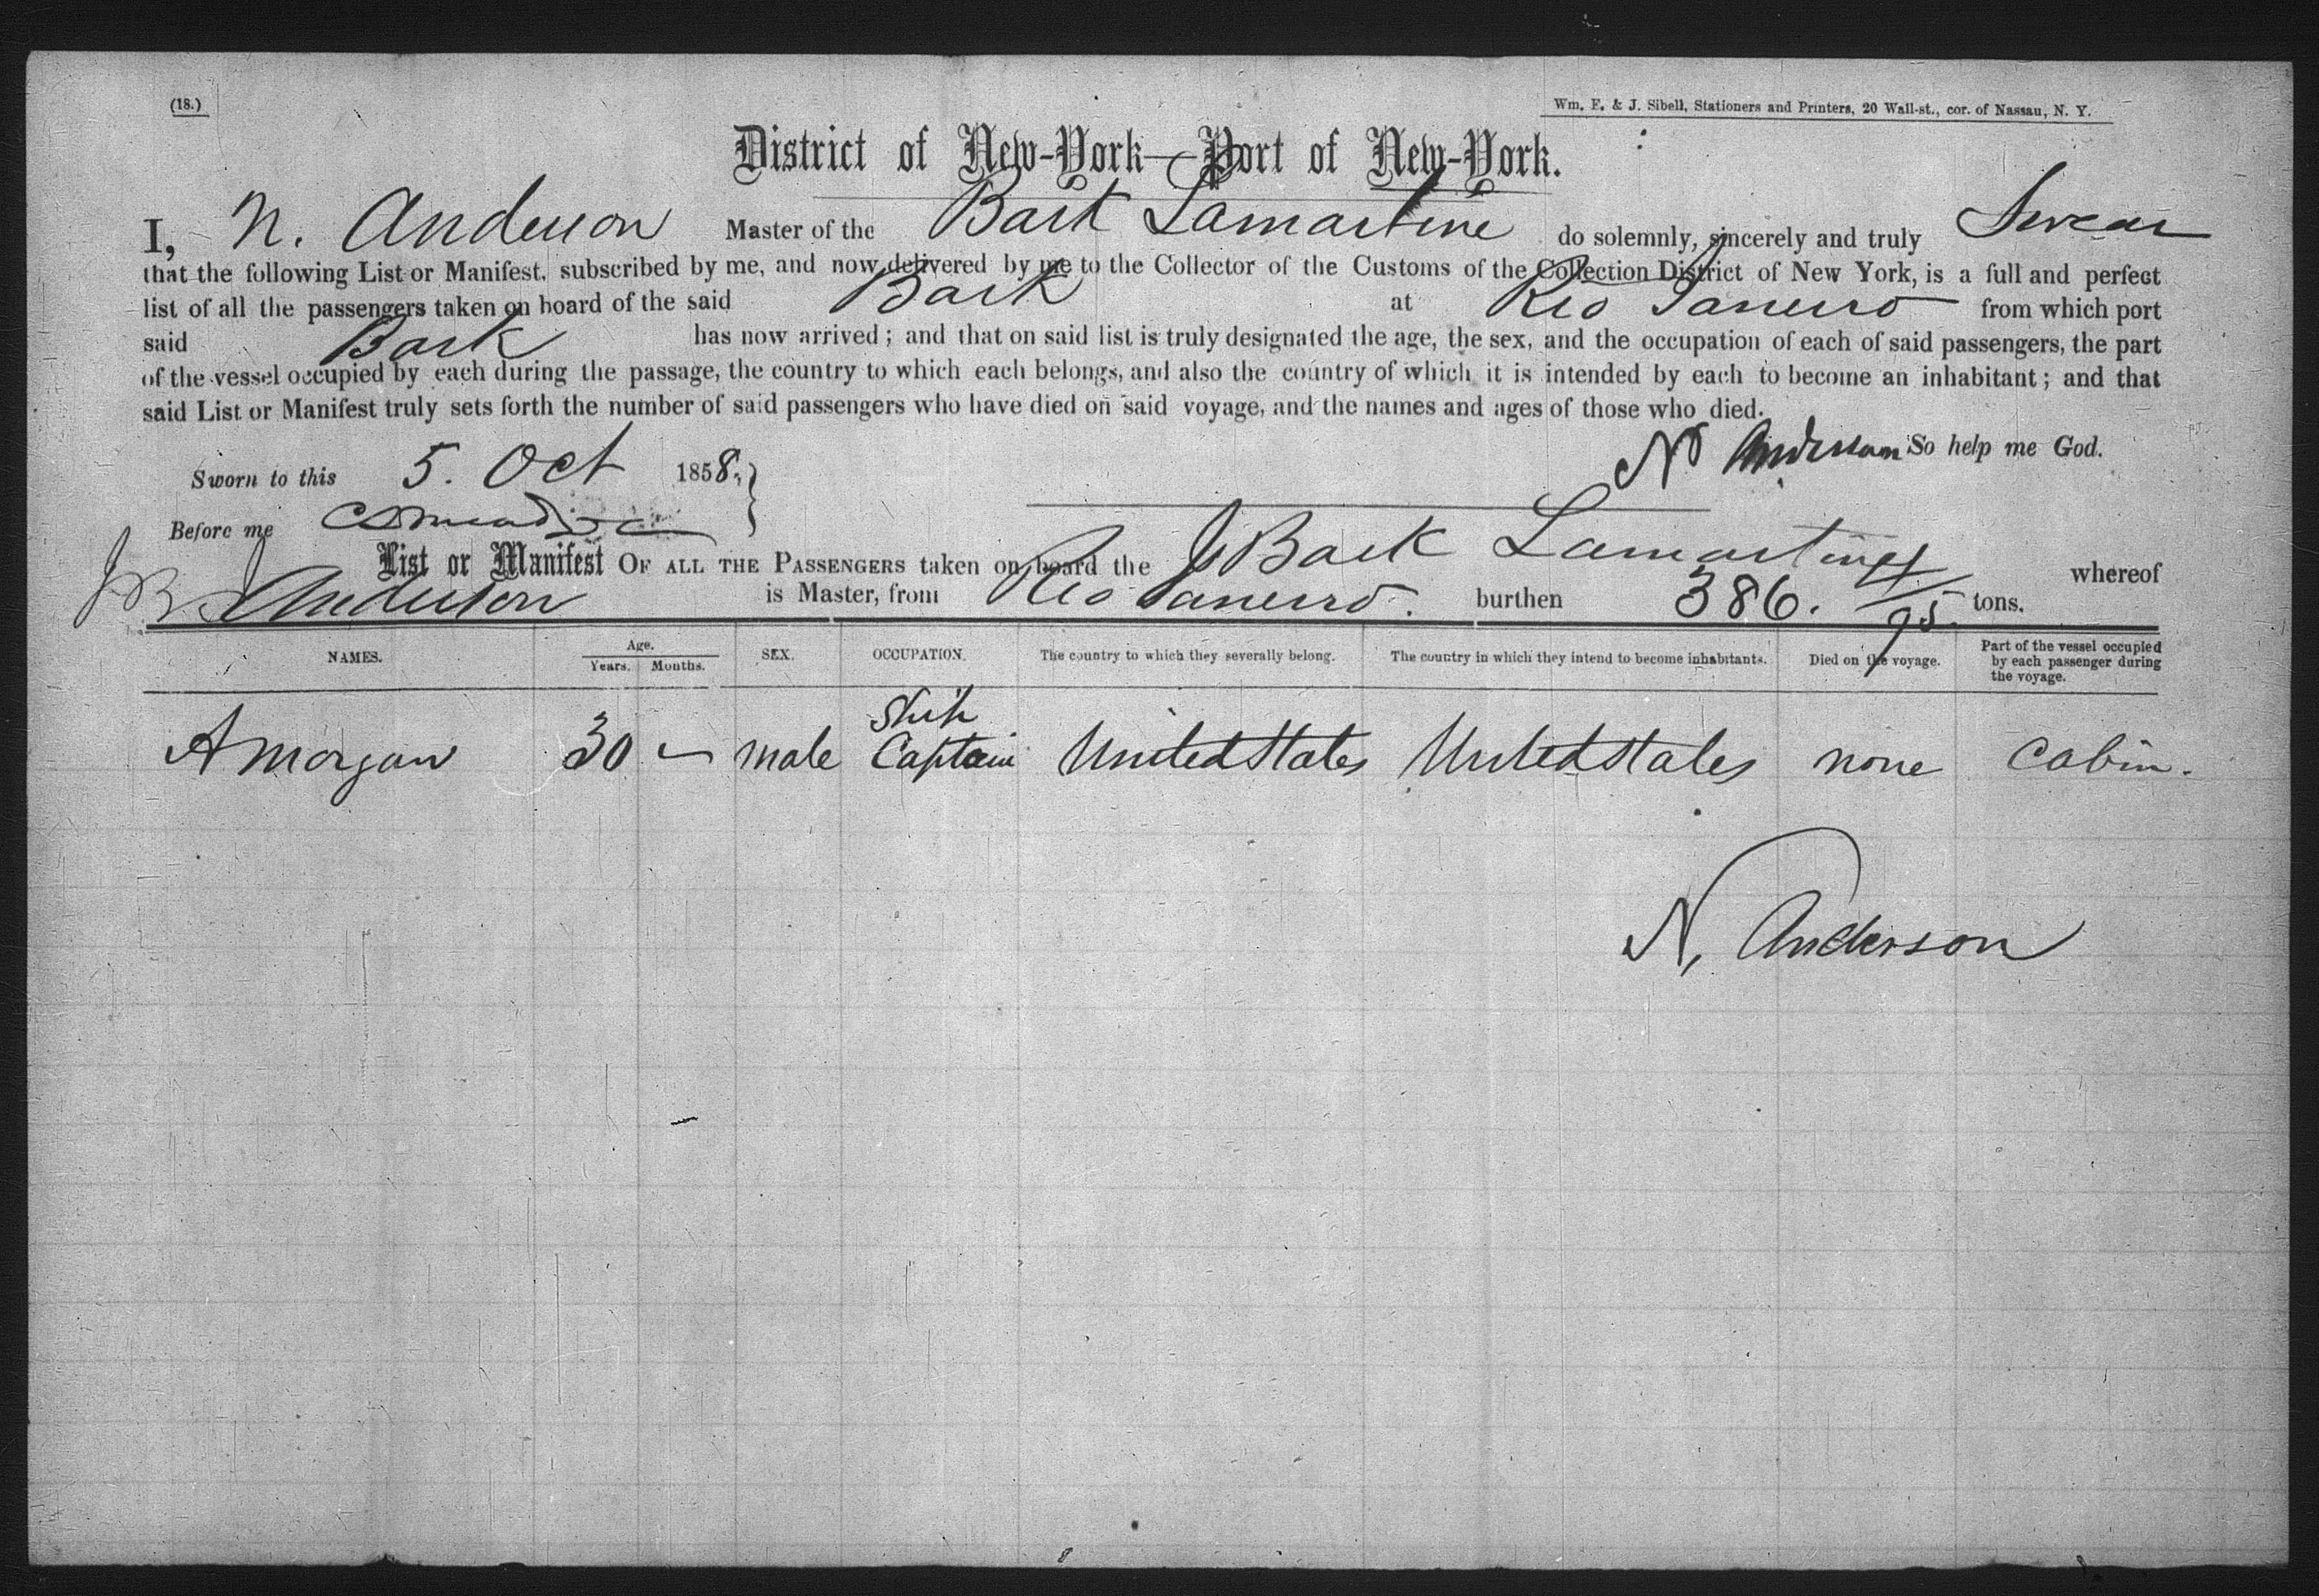 (18.)
Wm. E. & J. Sibell, Stationers and Printers, 20 Wall-st., cor. of Nassau, N. Y.
District of New-York—Port of New-York.
I, N. Anderson Master of the Bark Lamartine do solemnly, sincerely and truly Swear
that the following List or Manifest, subscribed by me, and now delivered by me to the Collector of the Customs of the Collection District of New York, is a full and perfect
list of all the passengers taken on board of the said Bark at Rio Janeiro from which port
said Bark has now arrived; and that on said list is truly designated the age, the sex, and the occupation of each of said passengers, the part
of the vessel occupied by each during the passage, the country to which each belongs, and also the country of which it is intended by each to become an inhabitant; and that
said List or Manifest truly sets forth the number of said passengers who have died on said voyage, and the names and ages of those who died.
N Anderson So help me God.
Sworn to this 5. Oct 1858,
Before me
List or Manifest OF ALL THE PASSENGERS taken on board the Bark Lamartine whereof
Anderson is Master, from Rio Janeiro. burthen 386. /95 tons.
NAMES. Age. Years. Months. SEX. OCCUPATION. The country to which they severally belong. The country in which they intend to become inhabitants. Died on the voyage. Part of the vessel occupied by each passenger during the voyage.
A Morgan 30 – male Ship Captain United States United States none Cabin.
N. Anderson